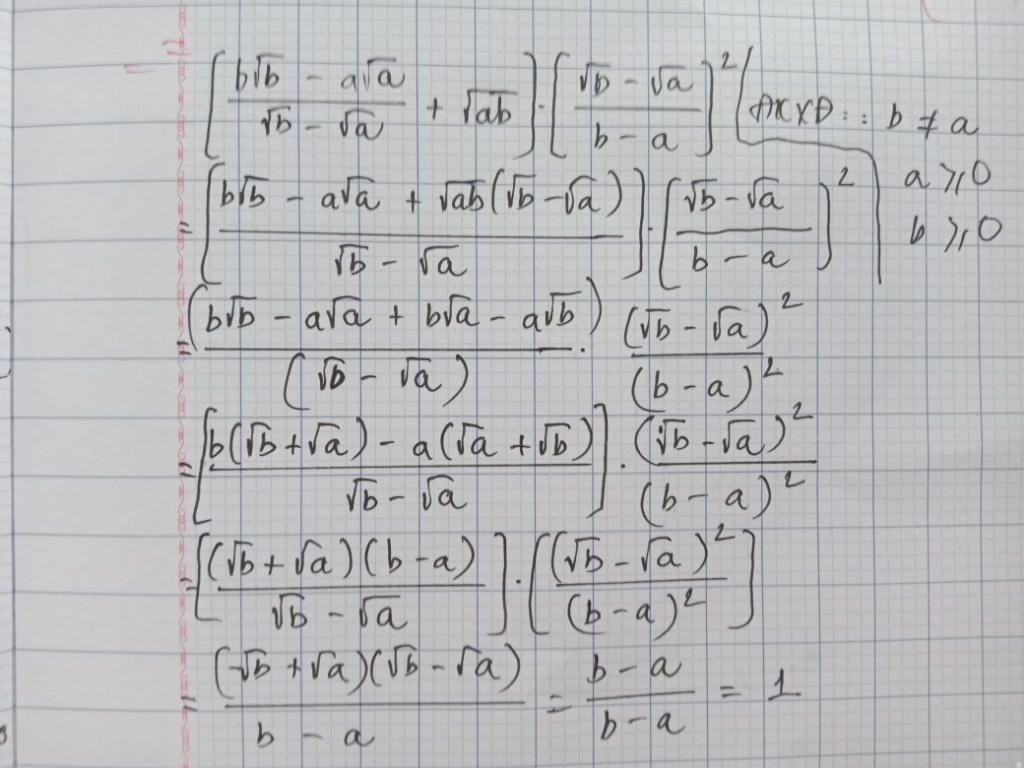 [(b√b - a√a)/(√b - √a) + √ab] · [(√b - √a)/(b - a)]² ĐKXĐ: b ≠ a
a ⩾ 0
b ⩾ 0
= [(b√b - a√a + √ab(√b - √a))/(√b - √a)] · [(√b - √a)/(b - a)]²
= (b√b - a√a + b√a - a√b)/(√b - √a) · (√b - √a)²/(b - a)²
= [(b(√b + √a) - a(√a + √b))/(√b - √a)] · (√b - √a)²/(b - a)²
= [(√b + √a)(b - a)/(√b - √a)] · [(√b - √a)²/(b - a)²]
= (√b + √a)(√b - √a)/(b - a) = (b - a)/(b - a) = 1